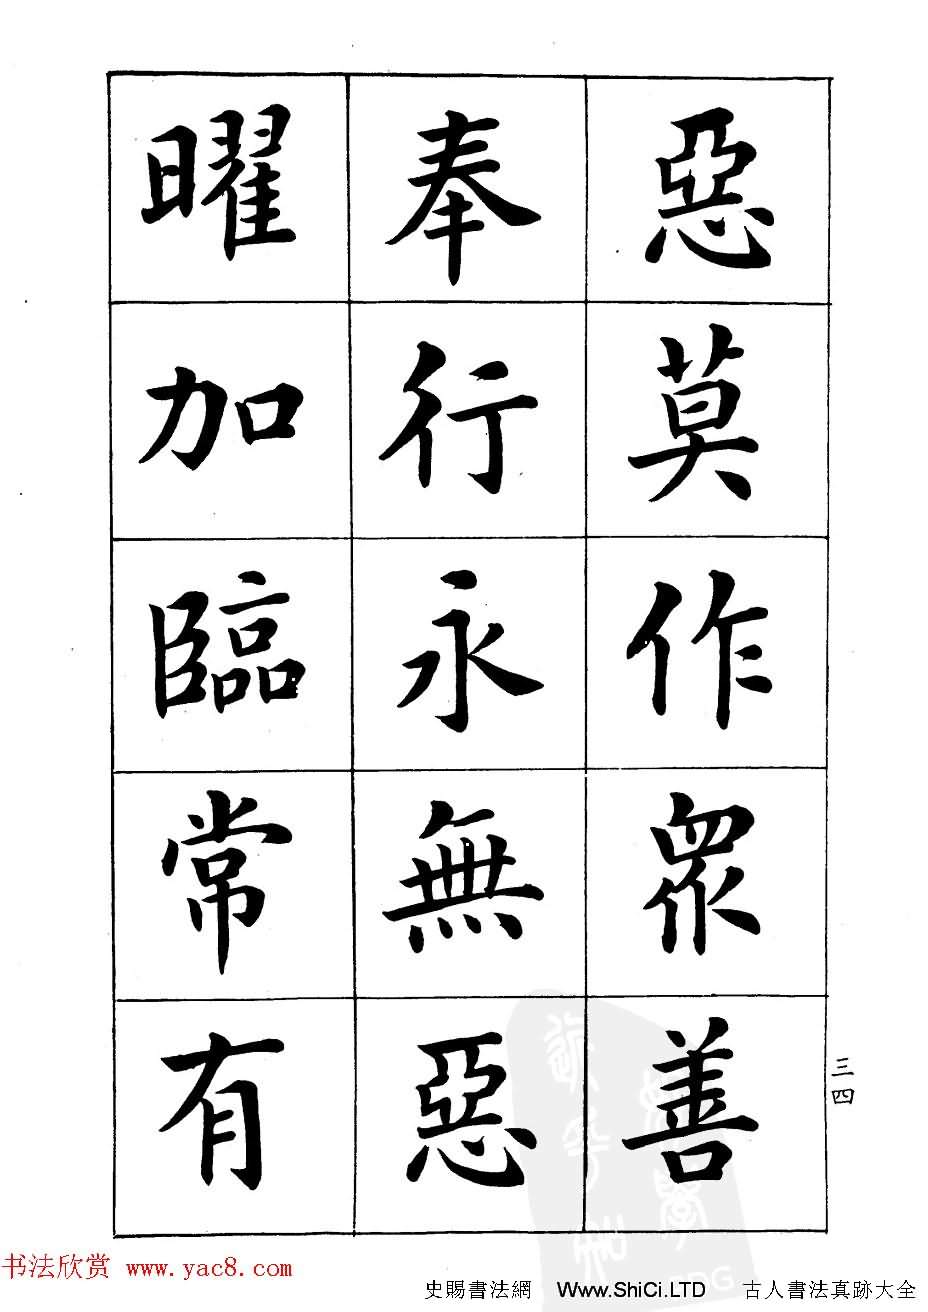 惡莫作眾善
奉行永無惡
曜加臨常有
三四
书法欣赏 www.yac8.com
史賜書法網 Www.ShiCi.LTD 古人書法真跡大全